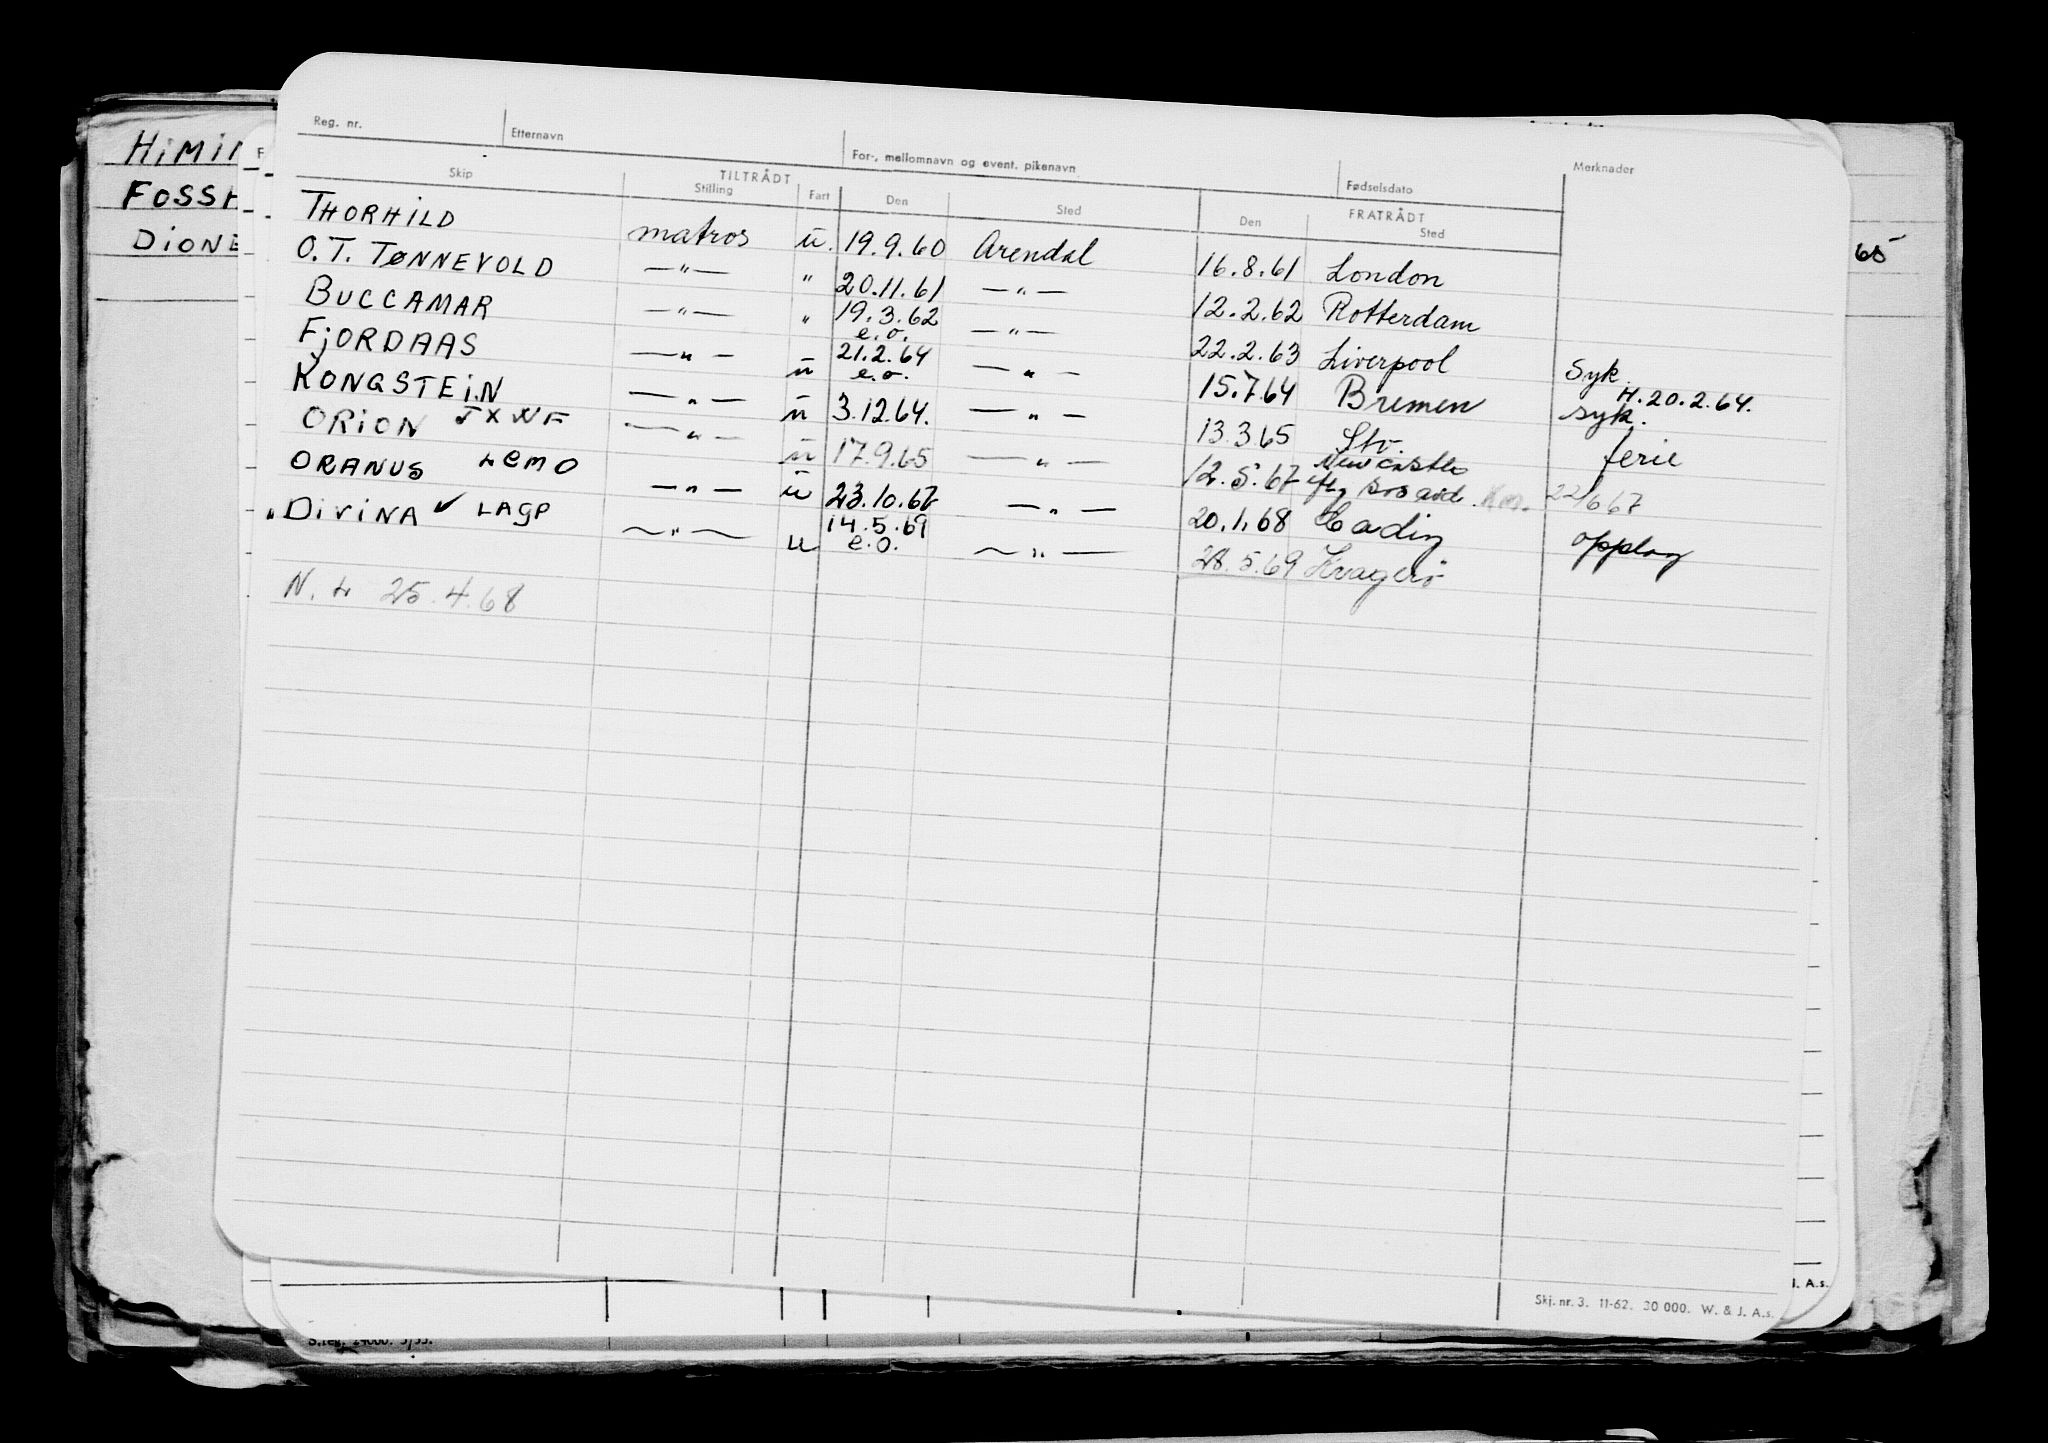 HIMIN
FOSSH
DIONE
F
65
Reg. nr. Etternavn For-, mellomnavn og event. pikenavn Fødselsdato Merknader
TILTRÅDT FRATRÅDT
Skip Stilling Fart Den Sted Den Sted
THORHILD matros ū. 19.9.60 Arendal 16.8.61 London
O.T. TØNNEVOLD —"— " 20.11.61 —"— 12.2.62 Rotterdam
BUCCAMAR —"— " 19.3.62 e.o. —"— 22.2.63 Liverpool Syk. H.20.2.64.
FjORDAAS —"— ū 21.2.64 e.o. —"— 15.7.64 Bremen syk.
KONGSTEIN —"— ū 3.12.64. —"— 13.3.65 Stv. ferie
ORION JXWF —"— ū 17.9.65 —"— 12.5.67 Newcastle 22/6 67
ORANUS LEMO —"— ū 23.10.67 —"— 20.1.68 opplag
" DIVINA ✓ LAGP —"— u 14.5.69 e.o. —"— 28.5.69 Kragerö
N. L 25.4.68
Skj. nr. 3. 11-62. 30 000. W. & J. A.s.
J. A.s.
S.reg. 24000. 5/55.